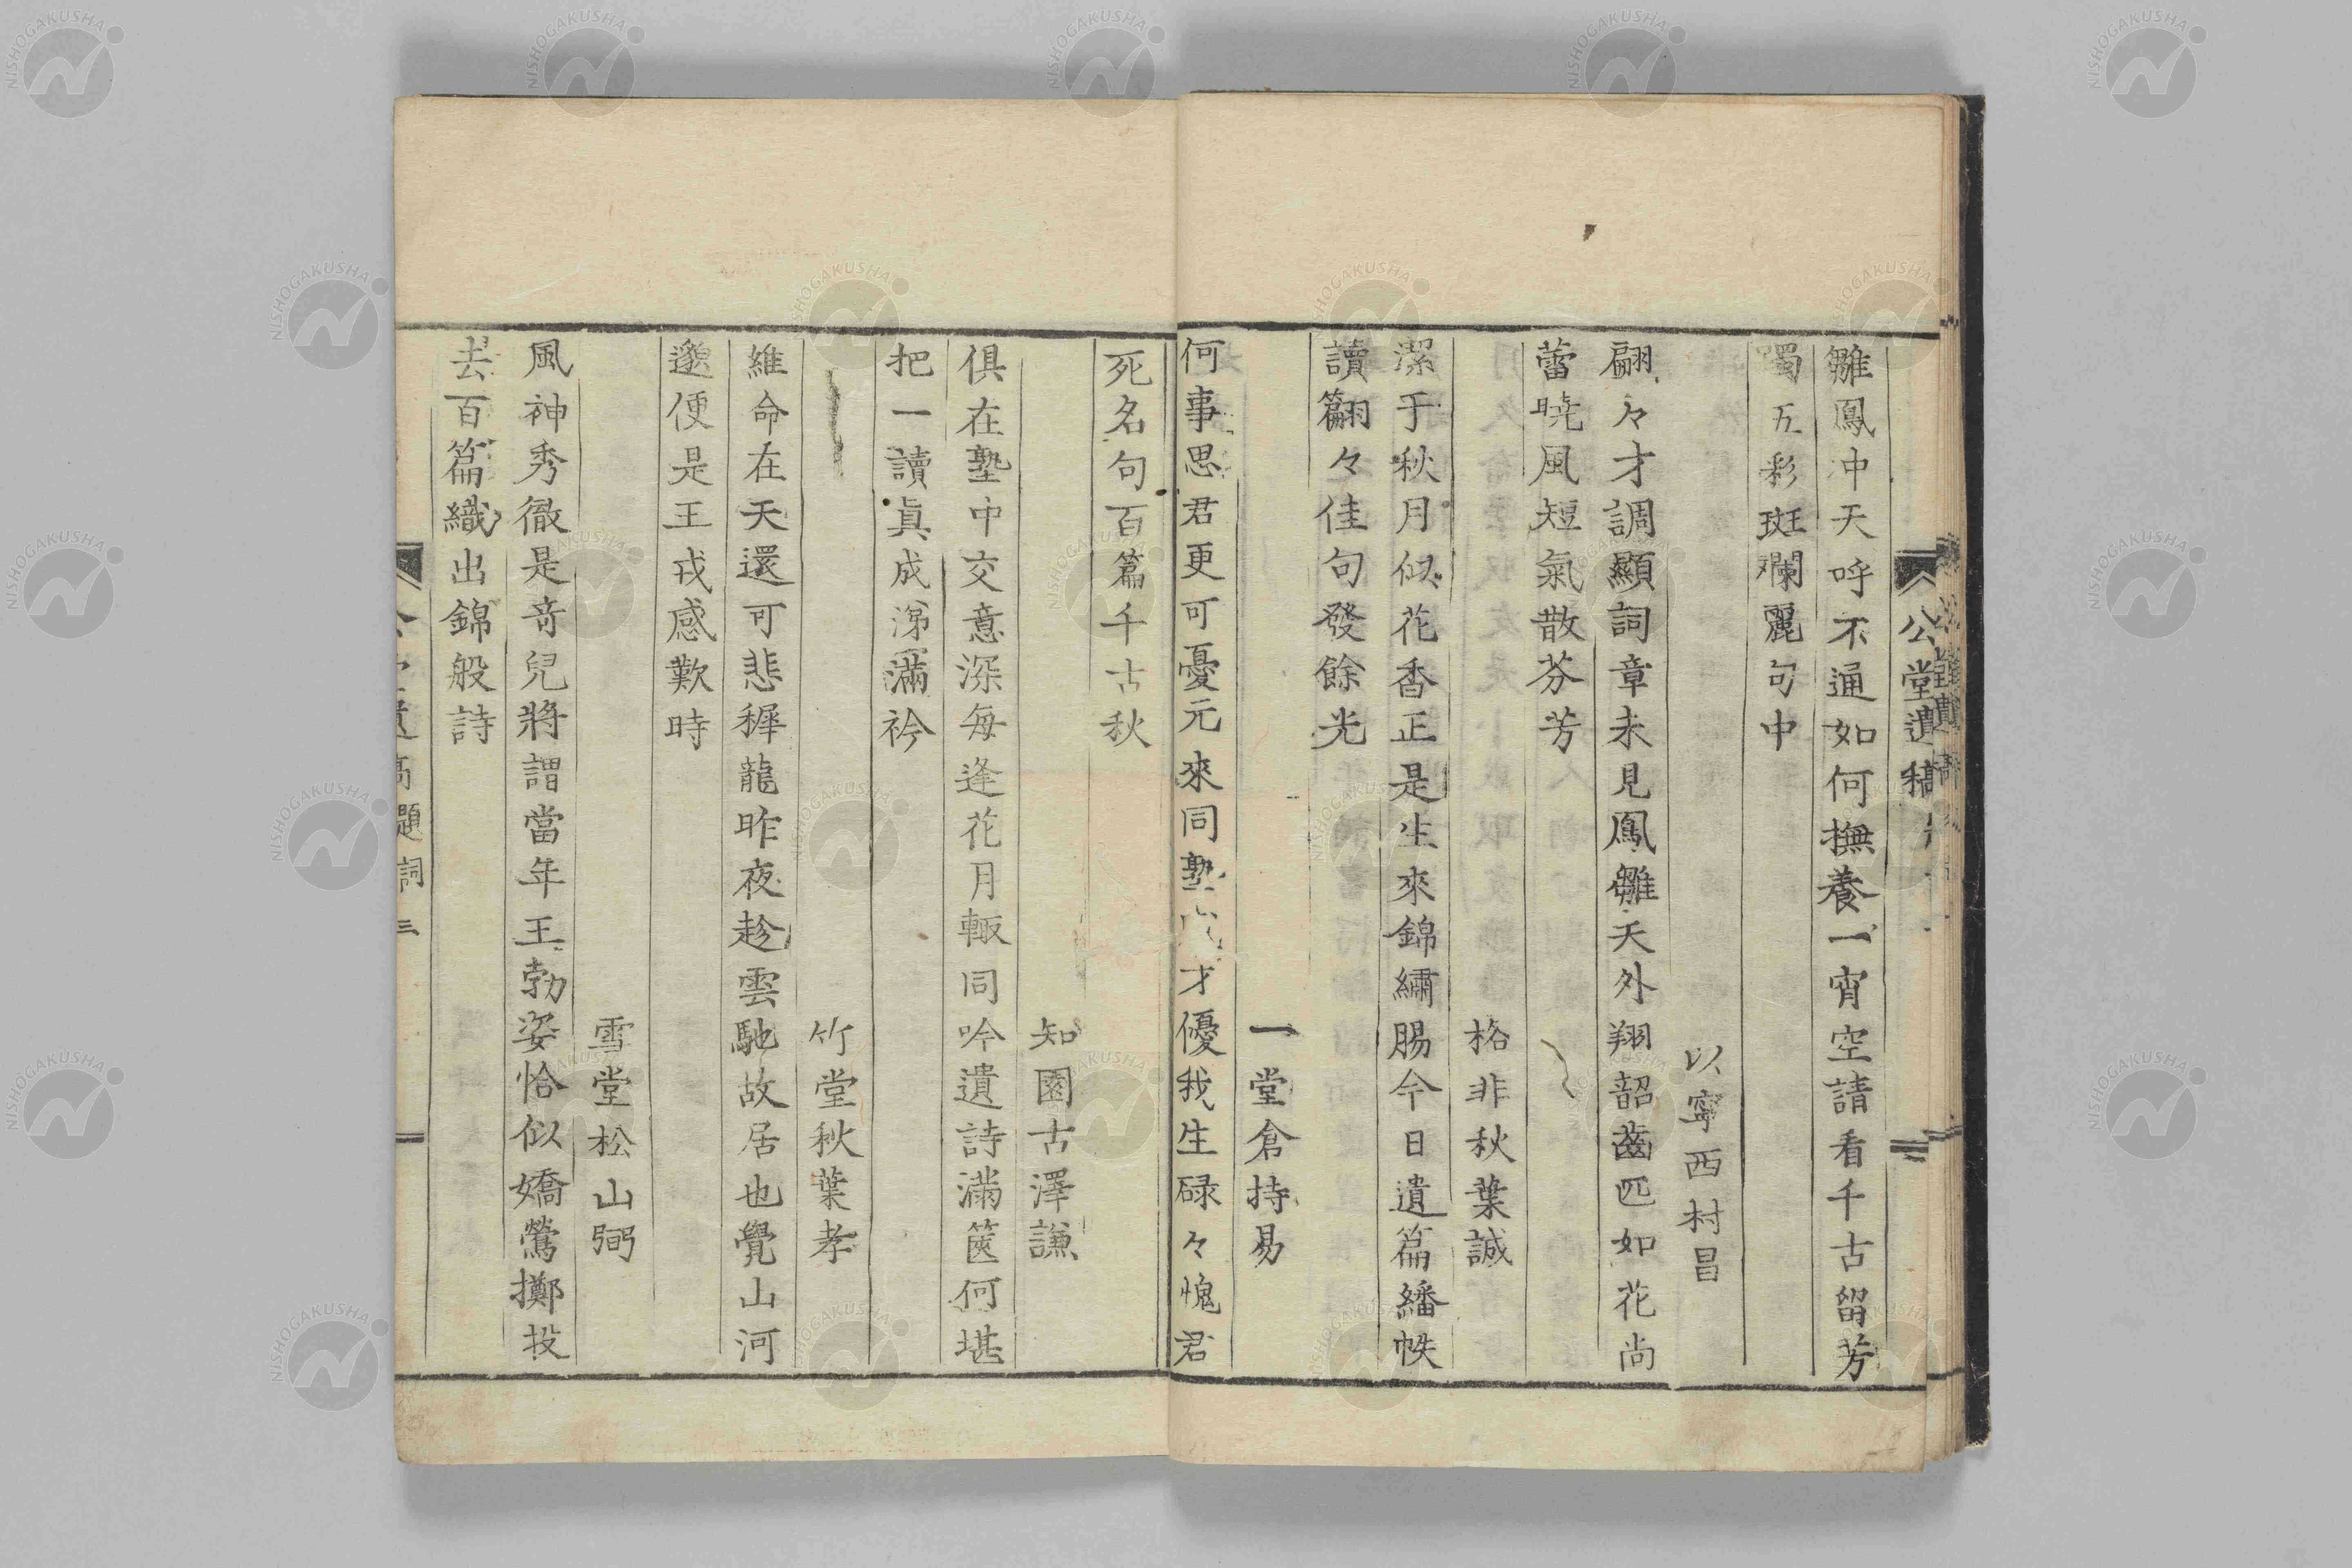 雛鳳冲天呼不通如何撫養一宵空請看千古留芳
躅五彩斑斕麗句中
以寧西村昌
翩々才調顯詞章未見鳳雛天外翔韶齒匹如花尚
蕾曉風短氣散芬芳
格非秋葉誠
潔于秋月似花香正是生來錦繡腸今日遺篇繙帙
讀翩々佳句發餘光
一堂倉持易
何事思君更可憂元來同塾才優我生碌々愧君
死名句百篇千古秋
知園古澤謙
俱在塾中交意深每逢花月輙同吟遺詩滿篋何堪
把一讀眞成涕滿衿
竹堂秋葉孝
維命在天還可悲穉龍昨夜趁雲馳故居也覺山河
邈便是王戎感歎時
雪堂松山弼
風神秀徹是竒兒將謂當年王勃姿恰似嬌鶯擲投
去百篇織出錦般詩
公堂遺稿
題詞
三
NISHOGAKUSHA